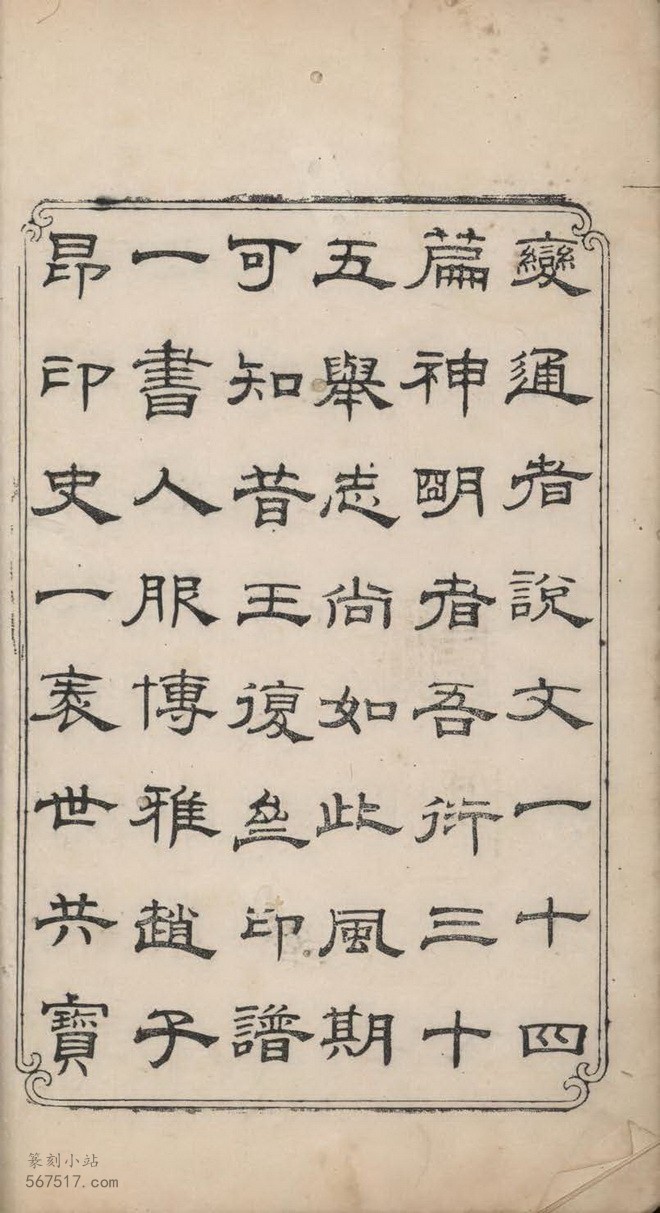 變通者說文一十四
篇神明者吾衍三十
五舉志尚如此風期
可知昔王復叁印譜
一書人服博雅趙子
昂印史一袠世共寶
篆刻小站
567517.com